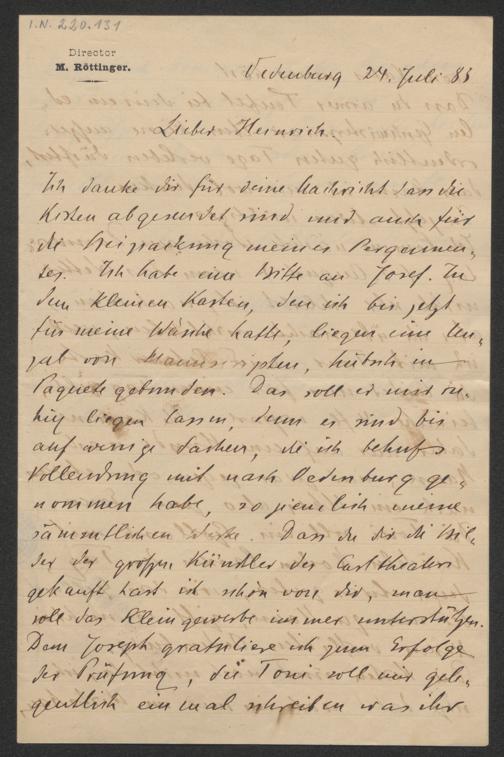 I.N. 220.131
Director
M. Röttinger.
Oedenburg 24. Juli 83
Lieber Heinrich
Ich danke dir für deine Nachricht dass die
Kisten abgesendet sind und auch für
die Beipackung meines
Ich habe eine Bitte an Josef. In
dem kleinen Kasten, den ich bis jetzt
für meine Wäsche hatte, liegen eine Un-
zal von Manuscripten, hübsch in
Paquete gebunden. Das soll er mir ru-
hig liegen lassen, denn es sind bis
auf wenige Sachen, die ich behufs
Vollendung mit nach Oedenburg ge-
nommen habe, so ziemlich meine
sämmtlichen Werke. Dass du dir die Bil-
der der großen Künstler des Carltheaters
gekauft hast ist schön von dir, man
soll das Kleingewerbe immer unterstützen.
Dem Joseph gratuliere ich zum Erfolge
der Prüfung, die Toni soll mir gele-
gentlich einmal schreiben was ihr